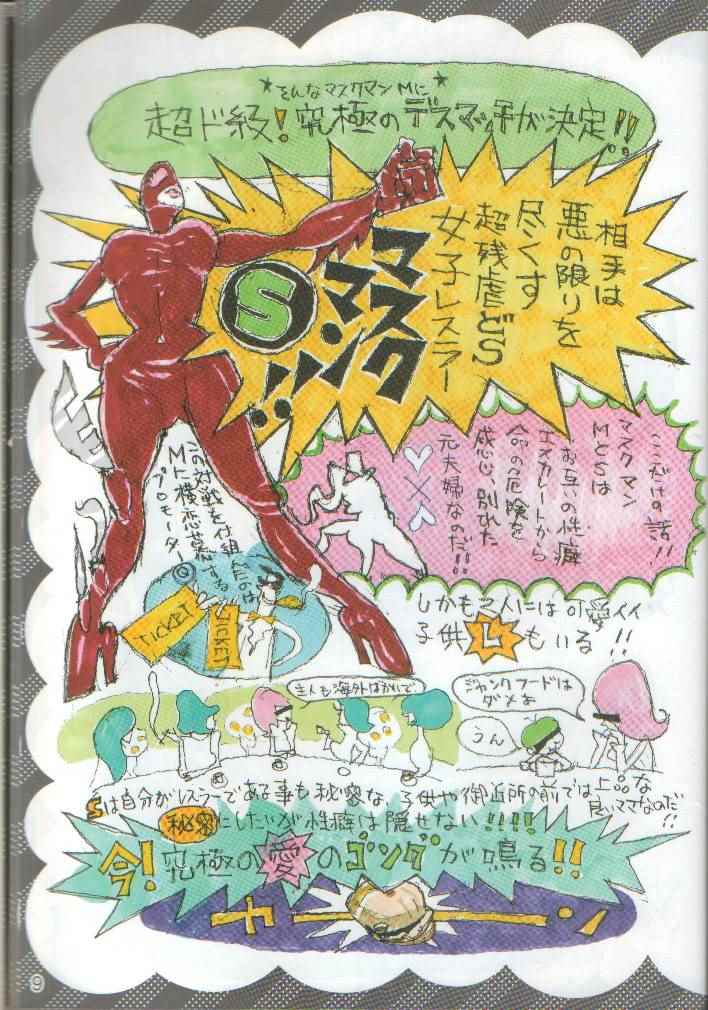 そんなマスクマンMに
超ド級!究極のデスマッチが決定!!
相手は
悪の限りを
尽くす
超残虐どS
女子レスラー
マスク
マン
S!!
ここだけの話!!
マスクマン
MとSは
お互いの性癖
エスカレートから
命の危険を
感じ、別れた
元夫婦なのだ!!
この対戦を仕組んだのは
Mに横恋慕する
プロモーターQ
TICKET
TICKET
しかも二人には可愛イイ
子供Lもいる!!
主人も海外ばかりで
ジャンクフードは
ダメよ
うん
Sは自分がレスラーである事も秘密な、子供や御近所の前では上品な
良いママなのだ!!
秘密にしたいが性癖は隠せない!!!!
今!究極の愛のゴングが鳴る!!
チーン
9